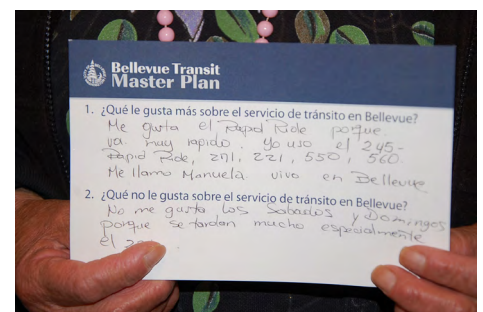 Bellevue Transit
Master Plan
1. ¿Qué le gusta más sobre el servicio de tránsito en Bellevue?
Me gusta el Rapid Ride porque
va muy rapido. Yo uso el 245-
Rapid Ride, 271, 221, 550, 560.
Me llamo Manuela vivo en Bellevue
2. ¿Qué no le gusta sobre el servicio de tránsito en Bellevue?
No me gusta los Sabados y Domingos
porque se tardan mucho especialmente
el